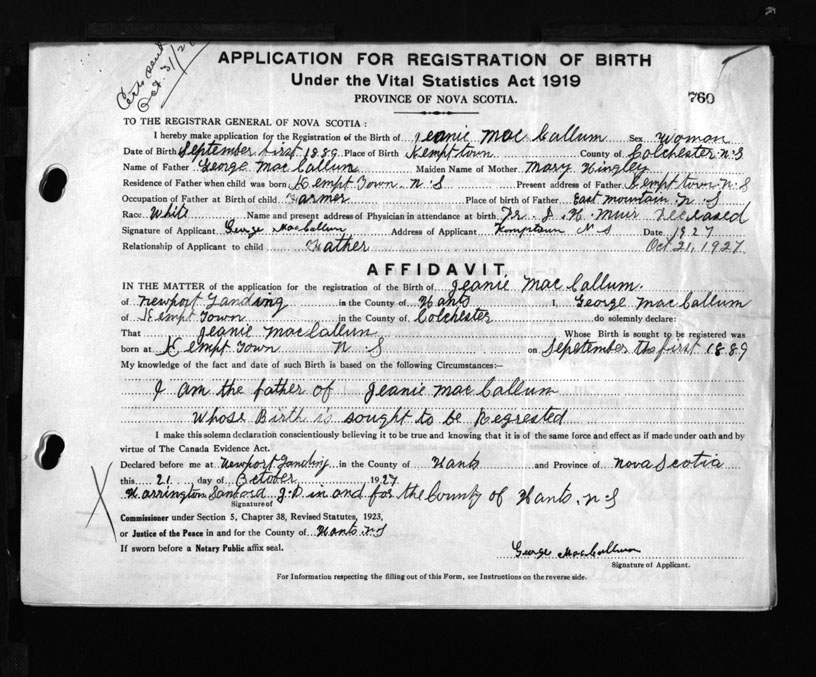 Certs sent
Oct. 31/27
APPLICATION FOR REGISTRATION OF BIRTH
Under the Vital Statistics Act 1919
PROVINCE OF NOVA SCOTIA.
760
TO THE REGISTRAR GENERAL OF NOVA SCOTIA :
I hereby make application for the Registration of the Birth of Jeanie Mac Callum Sex Woman
Date of Birth September first 1889 Place of Birth Kempt town County of Colchester N.S
Name of Father George Mac Callum Maiden Name of Mother Mary Kingley
Residence of Father when child was born Kempt Town. N.S Present address of Father Kempt town N.S
Occupation of Father at Birth of child Farmer Place of birth of Father East mountain N.S
Race White Name and present address of Physician in attendance at birth Dr. J. H. Muir Deceased
Signature of Applicant George MacCallum Address of Applicant Kemptown N S Date 1927
Relationship of Applicant to child Father Oct 21, 1927
AFFIDAVIT
IN THE MATTER of the application for the registration of the Birth of Jeanie Mac Callum.
of Newport Landing in the County of Hants I, George Mac Callum
of Kempt Town in the County of Colchester do solemnly declare:
That Jeanie MacCallum Whose Birth is sought to be registered was
born at Kempt Town N S on September the first 1889
My knowledge of the fact and date of such Birth is based on the following Circumstances:—
I am the father of Jeanie Mac Callum
Whose Birth is sought to be Regrested
I make this solemn declaration conscientiously believing it to be true and knowing that it is of the same force and effect as if made under oath and by
virtue of The Canada Evidence Act.
Declared before me at Newport Landing in the County of Hants and Province of Nova Scotia
this 21 day of October 1927
Harrington Sanford J.P. in and for the County of Hants. N.S
Signature of
Commissioner under Section 5, Chapter 38, Revised Statutes, 1923,
or Justice of the Peace in and for the County of Hants N.S
If sworn before a Notary Public affix seal.
George MacCallum
Signature of Applicant.
For Information respecting the filling out of this Form, see Instructions on the reverse side.